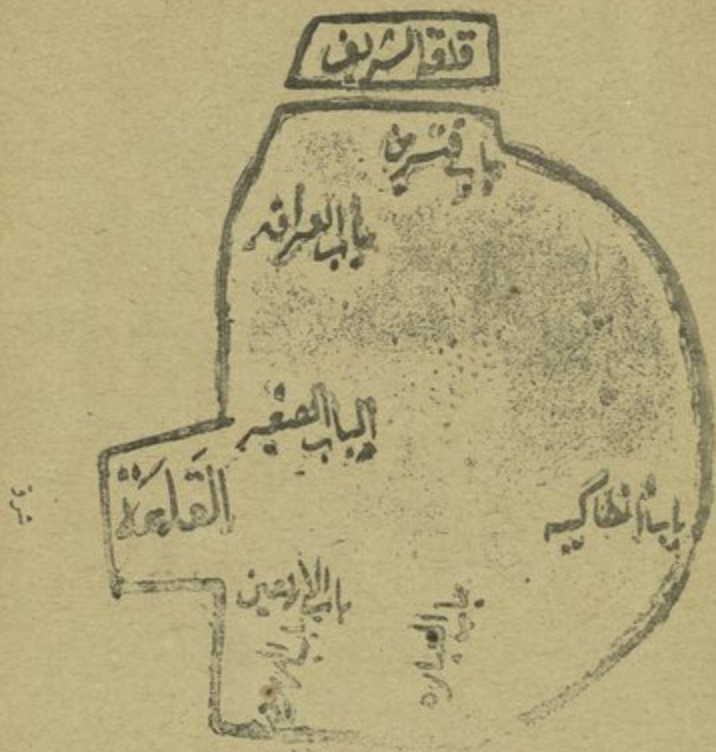 قلعة الشريف
باب قنسرين
باب العراق
الباب الصغير
القَلعَة
باب أنطاكيه
شرق
باب الأربعين
باب العباره